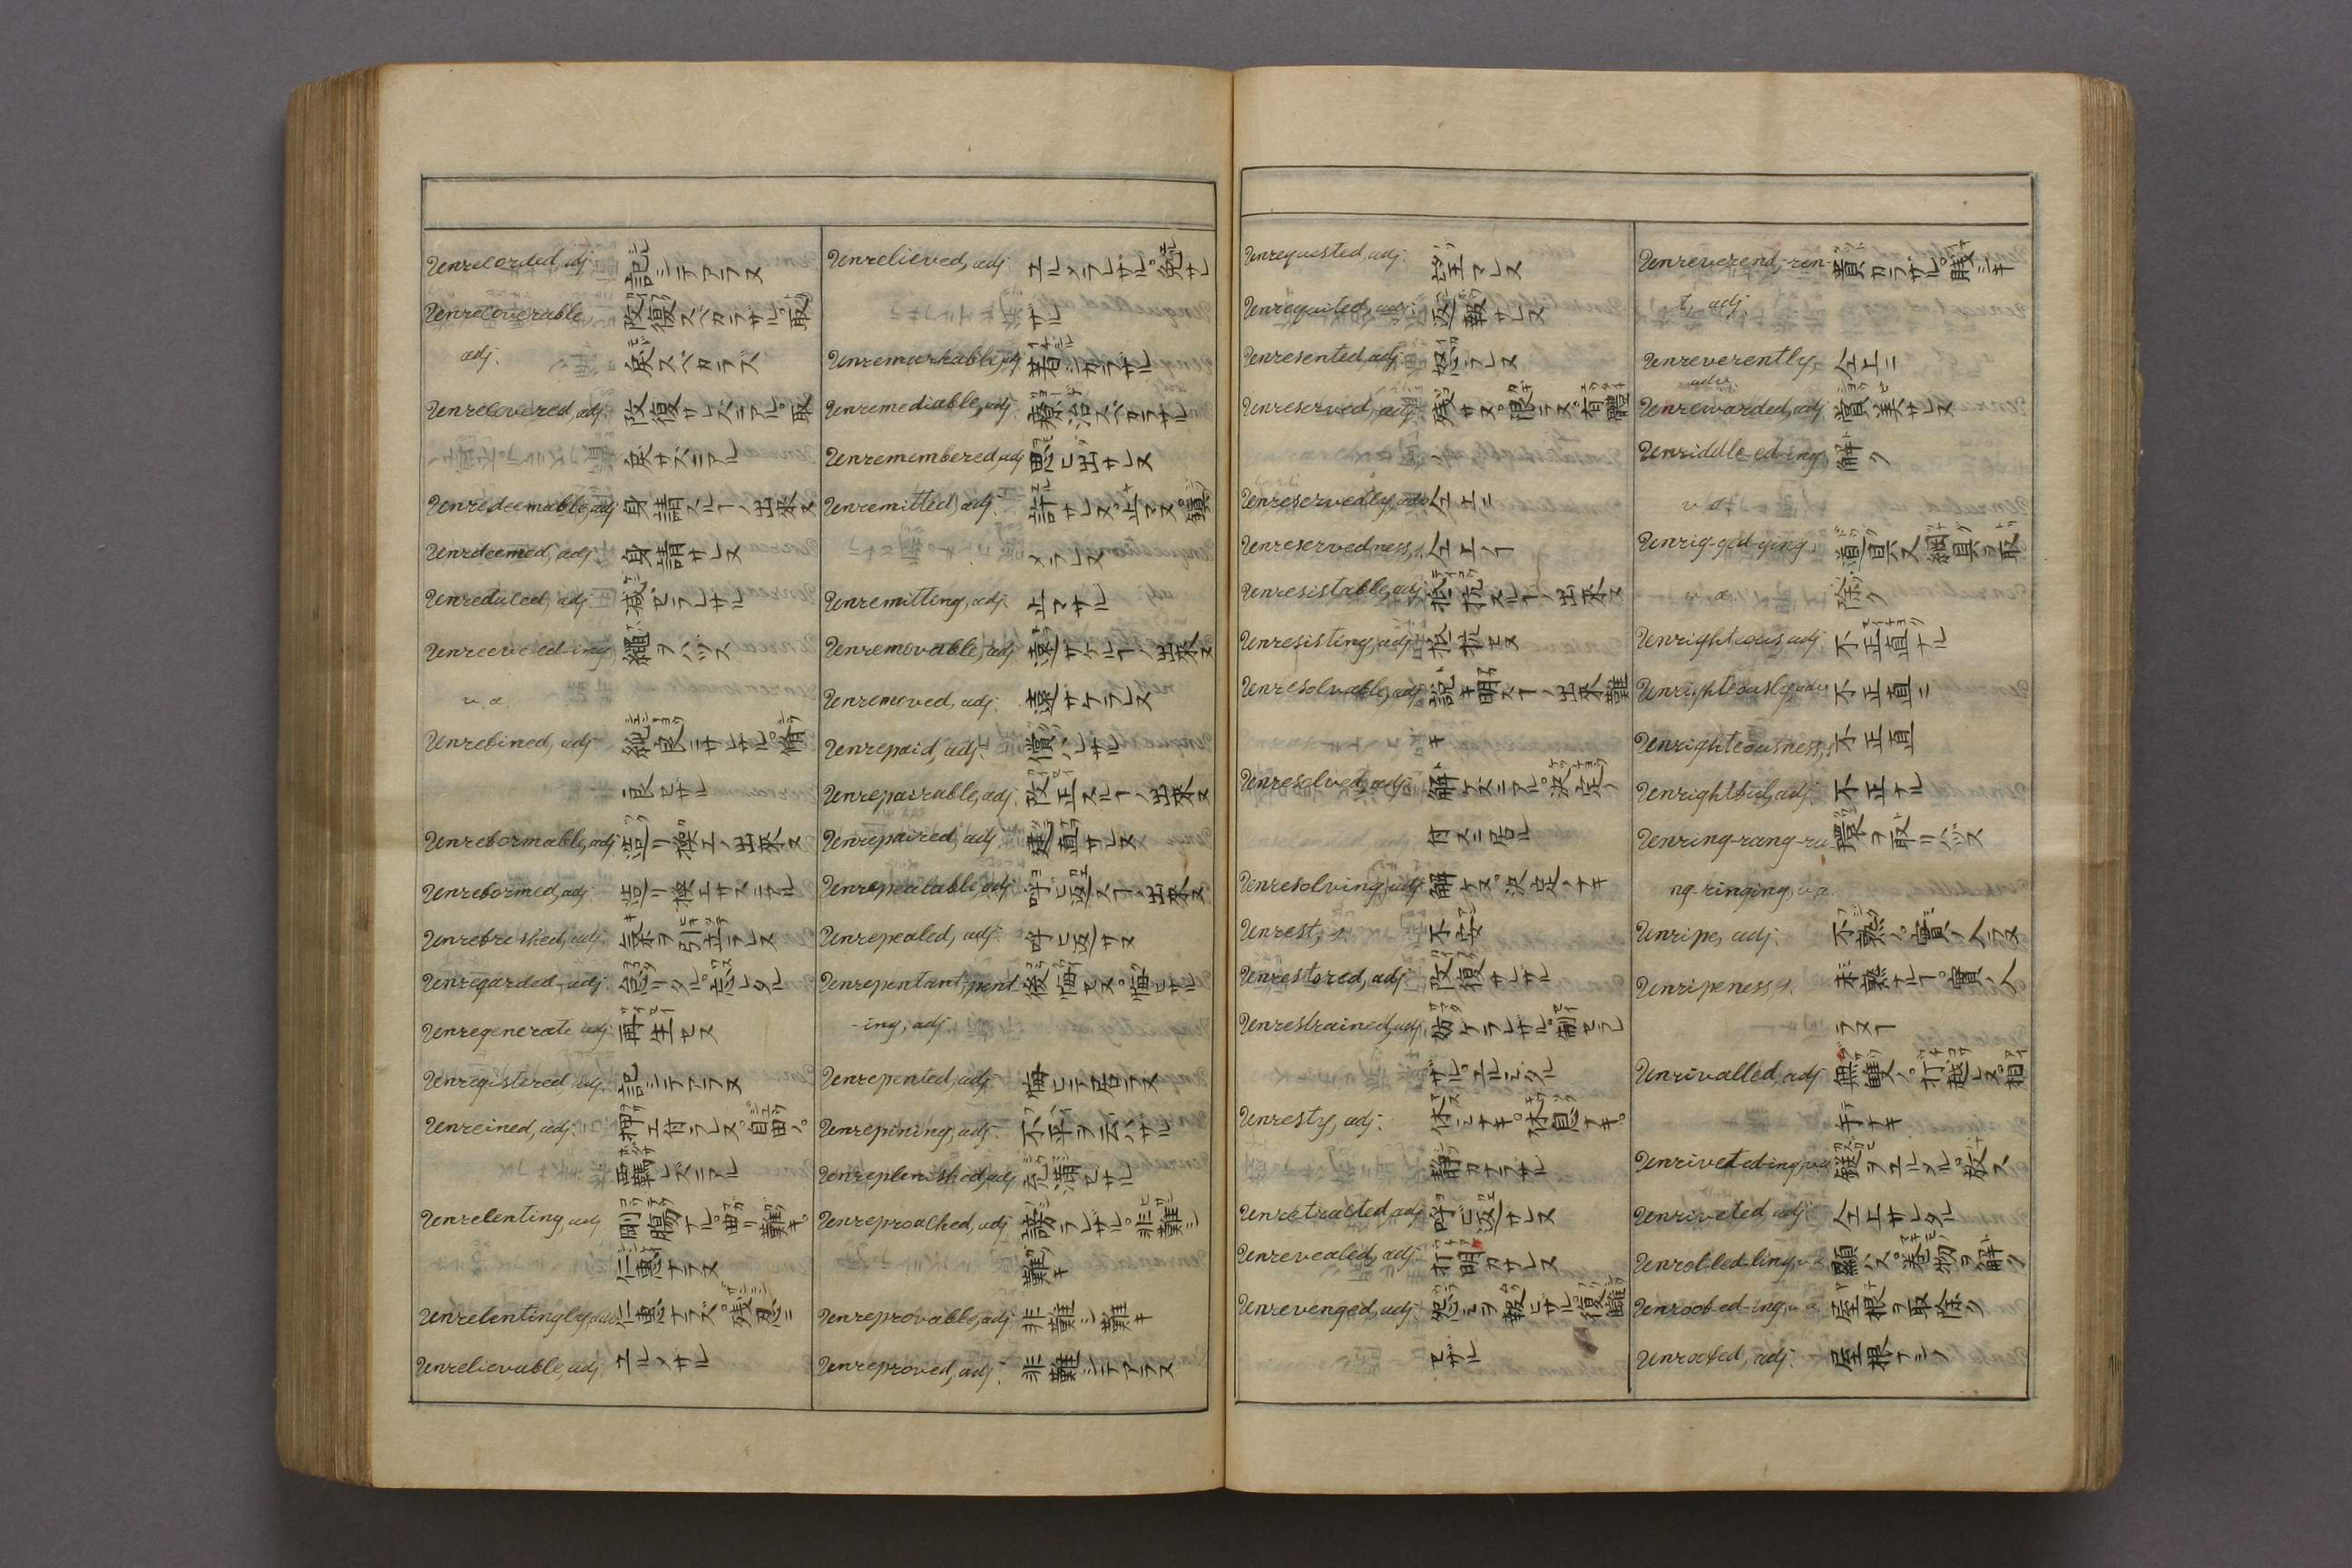 Unrecorded, adj. 記シテアラヌ
Unrecoverable, 改復スベカラザル。取
adj. 戻スベカラズ
Unrecovered, adj. 改復サレズニアル。取
戻サズニアル
Unredeemable, adj 身請スルヿノ出来ヌ
Unredeemed, adj. 身請サレヌ
Unreduced, adj. 減ゼラレザル
Unreeve-ed-ing 縄ヲハヅス
v. a.
Unrefined, adj. 純良ニサレザル。
良セザル
Unreformable, adj. 造リ換エノ出来ヌ
Unreformed, adj. 造リ換エサズニアル
Unrefreshed, adj. 気ヲ引立ラレヌ
Unregarded, adj. 怠リタル。忘レタル
Unregenerate, adj. 再生セヌ
Unregistered, adj. 記シテアラヌ
Unreined, adj. 押エ付ラレヌ。自由ノ。
羈レズニアル
Unrelenting, adj 剛膓ナル。曲リ難キ。
仁恵ナラヌ
Unrelentingly, adv 仁恵ナラズ。残忍ニ
Unrelievable, adj. エルメザル
Unrelieved, adj. エルメラレザル。免サレ
ザル
Unremarkable, adj 著シカラザル
Unremediable, adj. 療治スベカラザル
Unremembered, adj 思ヒ出サレヌ
Unremitted, adj. 許サレヌ。止マヌ。鎮
メラレヌ
Unremitting, adj. 止マザル
Unremovable, adj 遠サケルヿノ出来ヌ
Unremoved, adj. 遠サケラレヌ
Unrepaid, adj. 償ハレザル
Unrepairable, adj. 改正スルヿノ出来ヌ
Unrepaired, adj. 建直サレヌ
Unrepealable, adj. 呼ビ返スヿノ出来ヌ
Unrepealed, adj. 呼ビ返サヌ
Unrepentant, -pent 後悔セヌ。悔ヒザル
-ing, adj.
Unrepented, adj. 悔ヒテ居ラヌ
Unrepining, adj. 不平ヲ云ハザル
Unreplenished, adj 充満セザル
Unreproached, adj 謗ラレザル。非難シ
難キ
Unreprovable, adj 非難シ難キ
Unreproved, adj. 非難シテアラヌ
Unrequested, adj. 望マレヌ
Unrequited, adj. 返報サレヌ
Unresented, adj. 怒ラレヌ
Unreserved, adj. 残サヌ。限ラヌ。有體
ノ
Unreservedly, adv 仝上ニ
Unreservedness, s. 仝上ノヿ
Unresistable, adj. 抵抗スルヿノ出来ヌ
Unresisting, adj. 抵抗セヌ
Unresolvable, adj. 説キ明スヿノ出来難
キ
Unresolved, adj. 解ケズニアル。決定ノ
付ズニ居ル
Unresolving, adj. 解ケヌ。決定ノナキ
Unrest, s. 不安
Unrestored, adj. 改復サレザル
Unrestrained, adj. 妨ケラレザル。制セラレ
ザル。エルミタル
Unresty, adj. 休ミナキ。休息ナキ。
静カナラザル
Unretracted, adj. 呼ビ返サレヌ
Unrevealed, adj. 打明カサレヌ
Unrevenged, adj. 怨ミヲ報ヒザル。復讎
セザル
Unreverend, -ren- 貴カラザル。賤シキ
t, adj.
Unreverently, 仝上ニ
adv.
Unrewarded, adj. 賞美サレヌ
Unriddle-ed-ing, 解ク
v. a.
Unrig-ged-ging, 道具又綱具ヲ取
v. a. 除ク
Unrighteous, adj. 不正直ナル
Unrighteously, adv 不正直ニ
Unrighteousness, s 不正直
Unrightful, adj. 不正ナル
Unring-rang-ru- 環ヲ取リハヅス
ng-ringing, v. a.
Unripe, adj. 不熟ノ。實ノ入ラヌ
Unripeness, s. 未熟ナルヿ。實ノ入
ラヌヿ
Unrivalled, adj. 無雙ノ。打越レヌ。相
手ナキ
Unrivet-ed-ing, v.a. ヲエルメル。放ス
Unriveted, adj. 仝上サレタル
Unrol-led-ling, v.a. 顯ハス。巻物ヲ解ク
Unroof-ed-ing, v. a. 屋根ヲ取除ク
Unroofed, adj. 屋根ナシノ